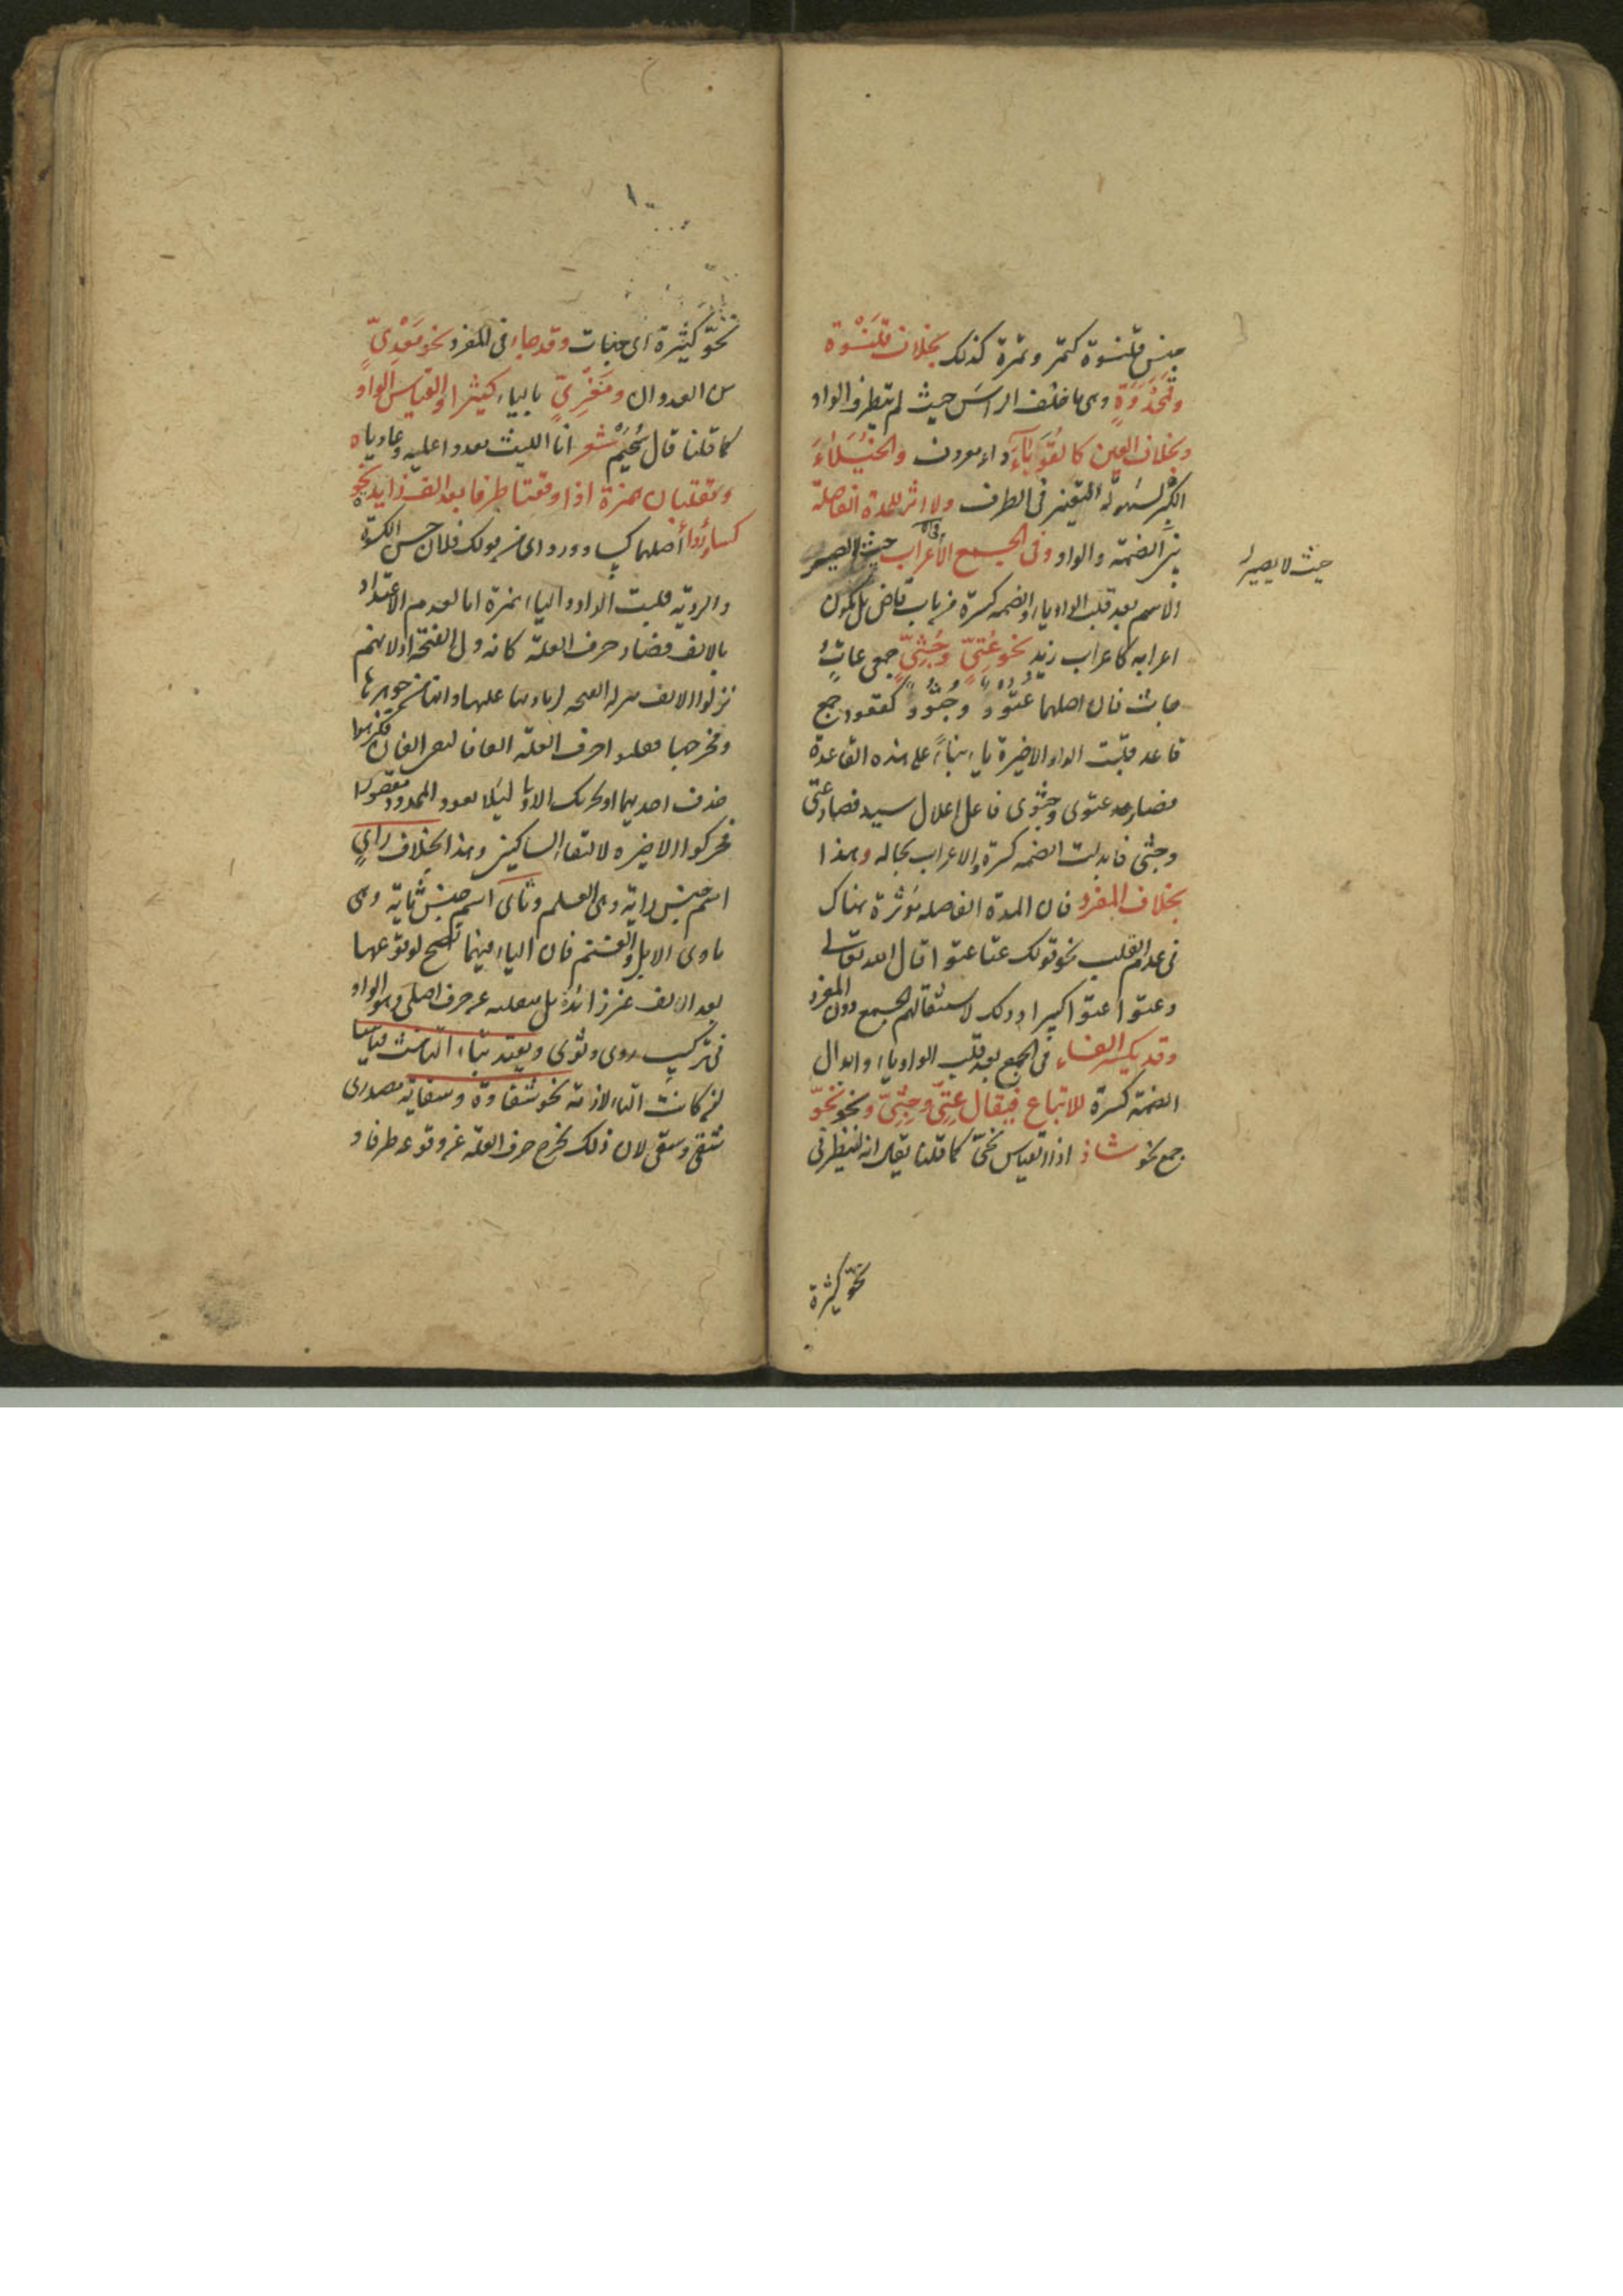 جنس قلنسوة كتمر وتمرة كذلك بخلاف قلنسوة
وقمحدوة وهى ما خلف الراس حيث لم يتطرف الواو
وبخلاف العين كالقوباء داء معروف والخيلاء
الكبر لسهولة التغير فى الطرف ولا اثر للمدة الفاصلة
بين الضمة والواو وفى الجمع الا فى الاعراب حيث لا يصير
حيث لا يصير
الاسم بعد قلب الواو ياء والضمة كسرة من باب قاض بل يكون
اعرابه كاعراب زيد نحو عُتِىّ وجُثِىّ جمعى عاتٍ
جاث فان اصلهما عتوو وجثوو كقعود جمع
قاعد قلبت الواو الاخيرة ياء بناءً على هذه القاعدة
فصار عتوى وجثوى فاعل اعلال سيد فصار عتى
وجثى فابدلت الضمه كسرة والاعراب بحاله وهذا
بخلاف المفرد فان المدة الفاصله مؤثرة هناك
فى عدم القلب نحو قولك عتا عتوا قال الله تعالى
وعتوا عتوا كبيرا وذلك لاستثقالهم الجمع دون المفرد
وقد يكسر الفاء فى الجمع بعد قلب الواو ياء وابدال
الضمة كسرة للاتباع فيقال عِتِىّ وجِثِىّ ونحو نحوّ
جمع نحو شاذ اذ القياس نحىّ كما قلنا يقال انه لينظر فى
نحوّ كثيرة
نحوّ كثيرة اى جهات وقد جاء فى المفرد نحو معدىّ
من العدوان ومغزىّ بالياء كثيرا والقياس الواو
كما قلنا قال سُحيم شعر انا الليث معدوا عليه وعاديا
وتقلبان همزة اذا وقعتا طرفا بعد الف زايدة نحو
كساء ورداء اصلهما كساو ورداى من قولك فلان حسن الكسوة
والردية قلبت الواو والياء همزة اما لعدم الاعتداد
بالالف فصار حرف العلة كانه ولى الفتحة او لانهم
نزلوا الالف منزلة الفتحة لزيادتها عليها وانها من جوهرها
ومخرجها فقلبوا حرف العلة الفا فالتقى الفان فكرهوا
حذف احديهما او تحريك الاولى ليلا يعود الممدود مقصورا
فحركوا الاخيرة لالتقاء الساكنين وهذا بخلاف راىٍ
اسم جنس راية وهى العلم وثاى اسم جنس ثاية وهى
ماوى الابل والغنم فان الياء فيهما تصح لوقوعها
بعد الف غير زائدة بل منقلبه عن حرف اصلى وهو الواو
فى تركيب روى وثوى ويعتد بتاء التانيث قياسا
ان كانت التاء لازمة نحو شقاوة وسقاية مصدرى
شقى وسقى لان ذلك يخرج حرف العلة عن وقوعه طرفا و